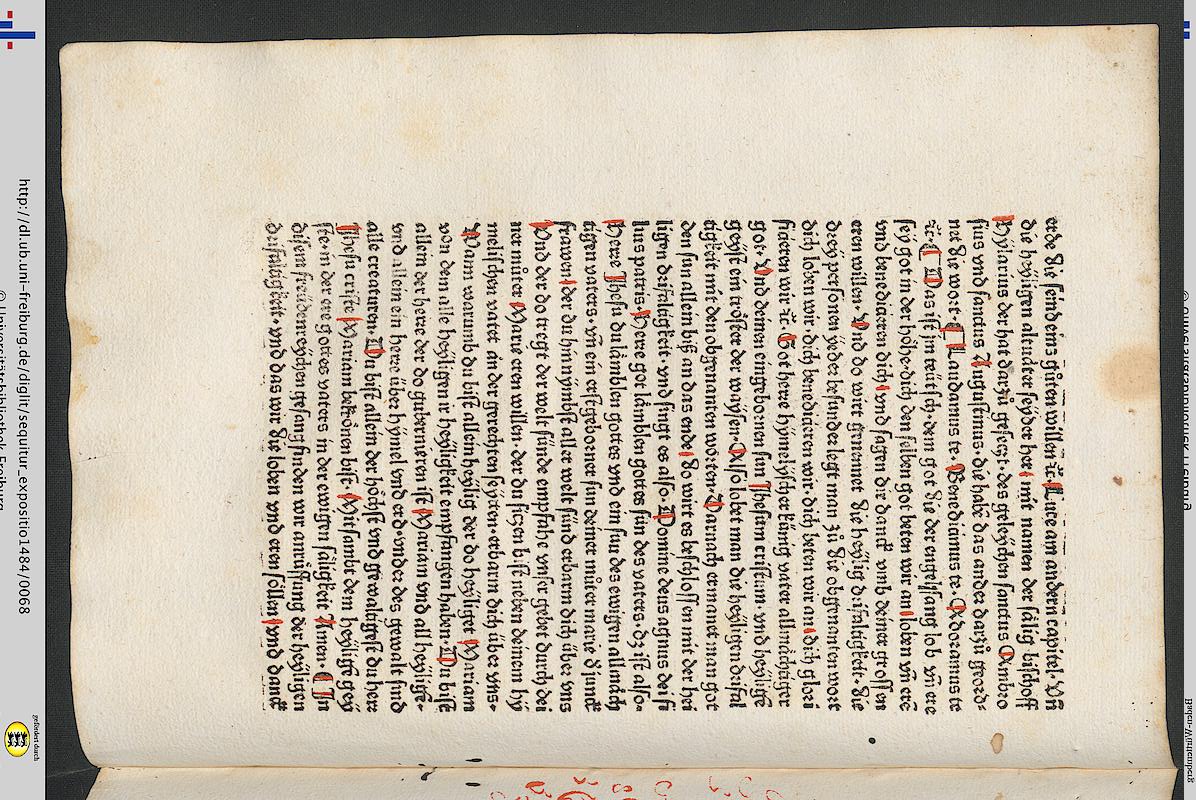 erde die seind eins gůten willen ꝛc. Luce am andern capitel. Vñ
die heyligen altuäter seyder her mit namen der sälig bischoff
Hylarius der hat darzů gesetzt. des geleychen sanctus Ambro
sius vnd sanctus Augustinus. die habẽ das ander darzů geord⸗
net die wort. Laudamus te. Benedicimus te. Adoramus te
ꝛc. Das ist jm teütsch. dem got die der engelssang lob vñ ere
sey got in der höhe. dich den selben got beten wir an loben vñ ere
vnd benediciren dich vnd sagen dir danck vmb deiner grossen
eren willen. Vnd do wirt genennet die heylig drifaltigkeit. die
drey personen yeder besunder legt man zů die obgenanten wort
dich loben wir. dich benedicieren wir. dich beten wir an. dich glori
ficieren wir ꝛc. Got herre hymelischer künig vater allmächtiger
got. Vnd deinen eingebornen sun Jhesum cristum. vnd heyligẽ
geyst ein tröster der waysen. Also lobet man die heyligen drifal
tigkeit mit den obgenanten worten. Darnach ermanet man got
den sun allein biß an das ende. So wirt es beschlossen mit der hei
ligen drifaltigkeit. vnd singt es also. Domine deus agnus dei fi
lius patris. Herre got lämblen gottes sun des vaters. dz ist also.
Herre Jhesu du lämblen gottes vnd ein sun des ewigen allmäch
tigen vaters. vñ ein erstgeborner sun deiner můter marie d̕ junck
frawen der du hin nýmbst aller welt sünd erbarm dich über vns
Vnd der do tregt der welt sünde empfahe vnser gebet durch dei
ner můter Marie eren willen. der du sitzen bist neben deinem hý
melischen vater an der gerechten seyten. erbarm dich über vns.
Wann warumb du bist allein heylig der do heyliget Mariam
von dem alle heyligen ir heyligkeit empfangen haben. Du bist
allein der herre der do gubernieren ist Mariam vnd all heylige.
vnd allein ein herre über hýmel vnd erd. vnder des gewalt sind
alle creaturen. Du bist allein der höchst vnd gewaltigest du herr
Jhesu criste Mariam bekrönen bist. Mitsambt dem heylige geỹ
ste. in der ere gottes vaters in der ewigen säligkeit Amen. In
disem freüdenreychen gesang finden wir anrüffung der heyligen
drifaltigkeit. vnd das wir die loben vnd eren söllen vnd danck
http://dl.ub.uni-freiburg.de/diglit/sequitur_expositio1484/0068
© Universitätsbibliothek Freiburg
gefördert durch
Baden-Württemberg